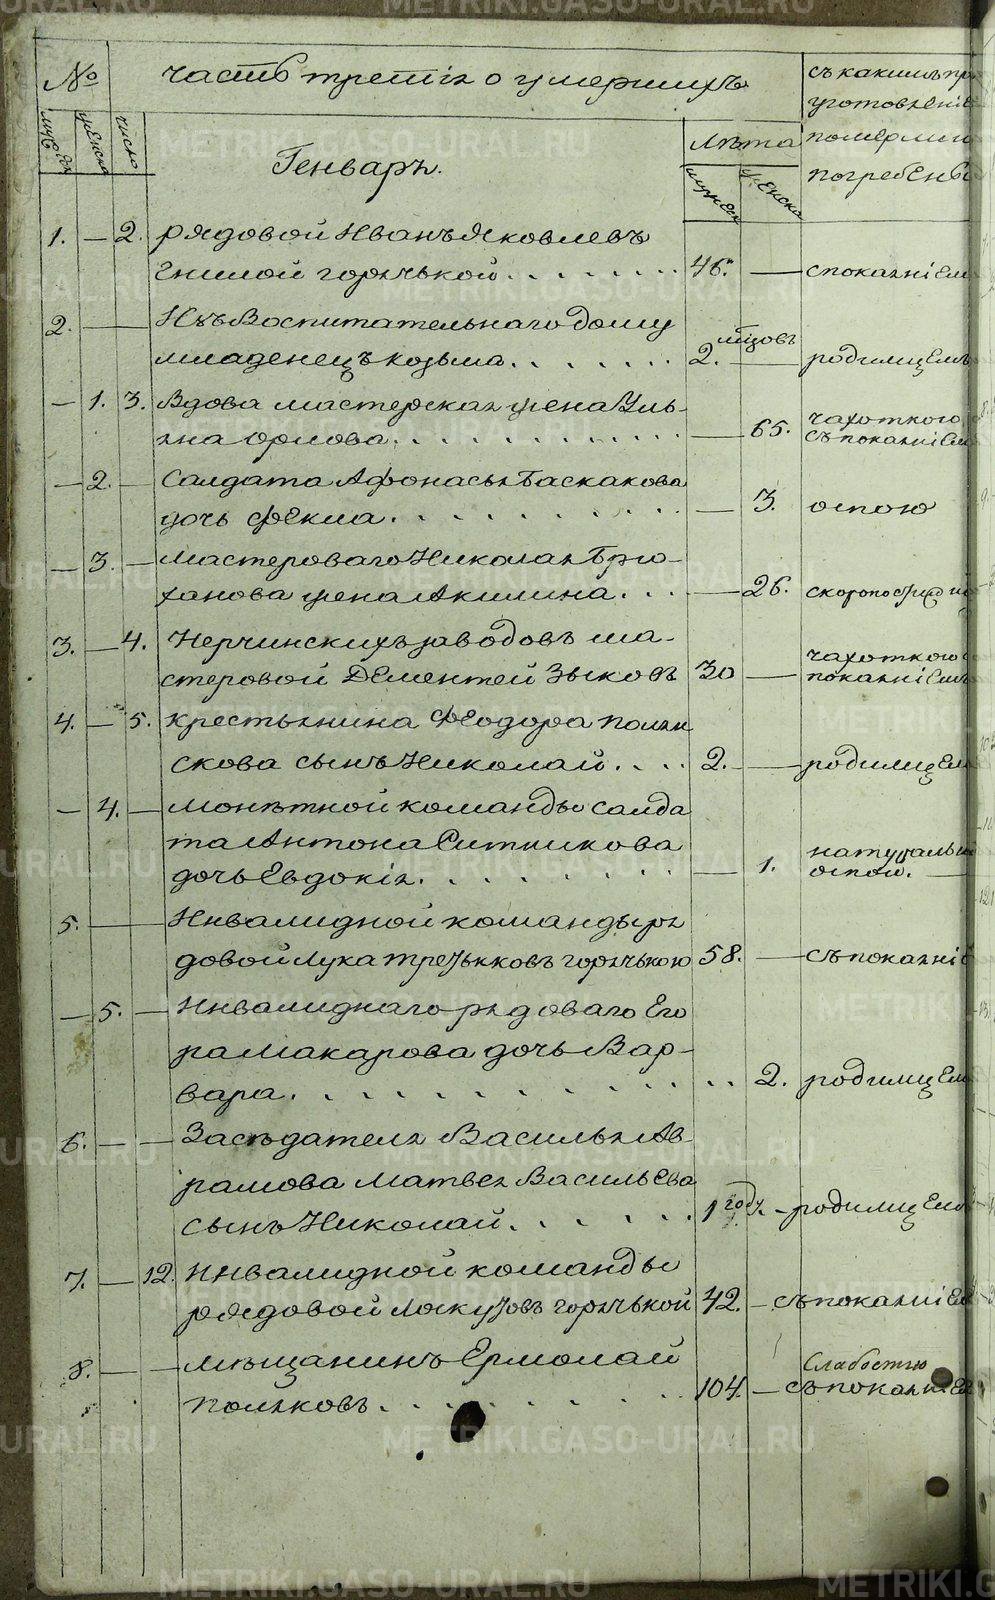 № часть третія о умершихъ
съ какимъ
уготовленіе
мужеска женска число
Лѣта
померли и
Генварь.
мужеска женска
погребены
1. — 2. рядовой Иванъ Яковлевъ
Гнилой горячькой 46. — с покаяніем
2. — — Изъ Воспитательнаго дому
младенецъ козьма 2. мѣсяцовъ — родимцемъ
— 1. 3. Вдова мастерская жена Уль-
яна орлова — 65. чахоткою
съ покаяніем
— 2. — Салдата Афонасья Баскакова
дочь Фекла — 3. оспою
— 3. — Мастероваго Николая Брю-
ханова жена Акилина — 26. скоропостиж
3. — 4. Нерчинскихъ заводовъ ма-
стеровой Дементей Зыковъ 30 — чахоткою
покаяніемъ
4. — 5. крестьянина Феодора поля
скова сынъ Николай 2. — родимцем
— 4. — Монѣтной команды салда
та Антона Ситникова
дочь Евдокія — 1. натуральн
оспой.
5. — — Инвалидной команды ря
довой Лука Третьяковъ горячькою 58. — съ покаяніе
— 5. — Инвалиднаго рядоваго Его
ра Макарова дочь Вар-
вара 2. родимцем
6. — — Засѣдателя Василья Ав
рамова Матвея Васильева
сынъ Николай 1 годъ. — родимцем
7. — 12. Инвалидной команды
рядовой Лоскутовъ горячькой 42. — съ покаяніем
8. — — Мѣщанинъ Ермолай
Поляковъ 104. — Слабостию
съ покаяніем
METRIKI.GASO-URAL.RU